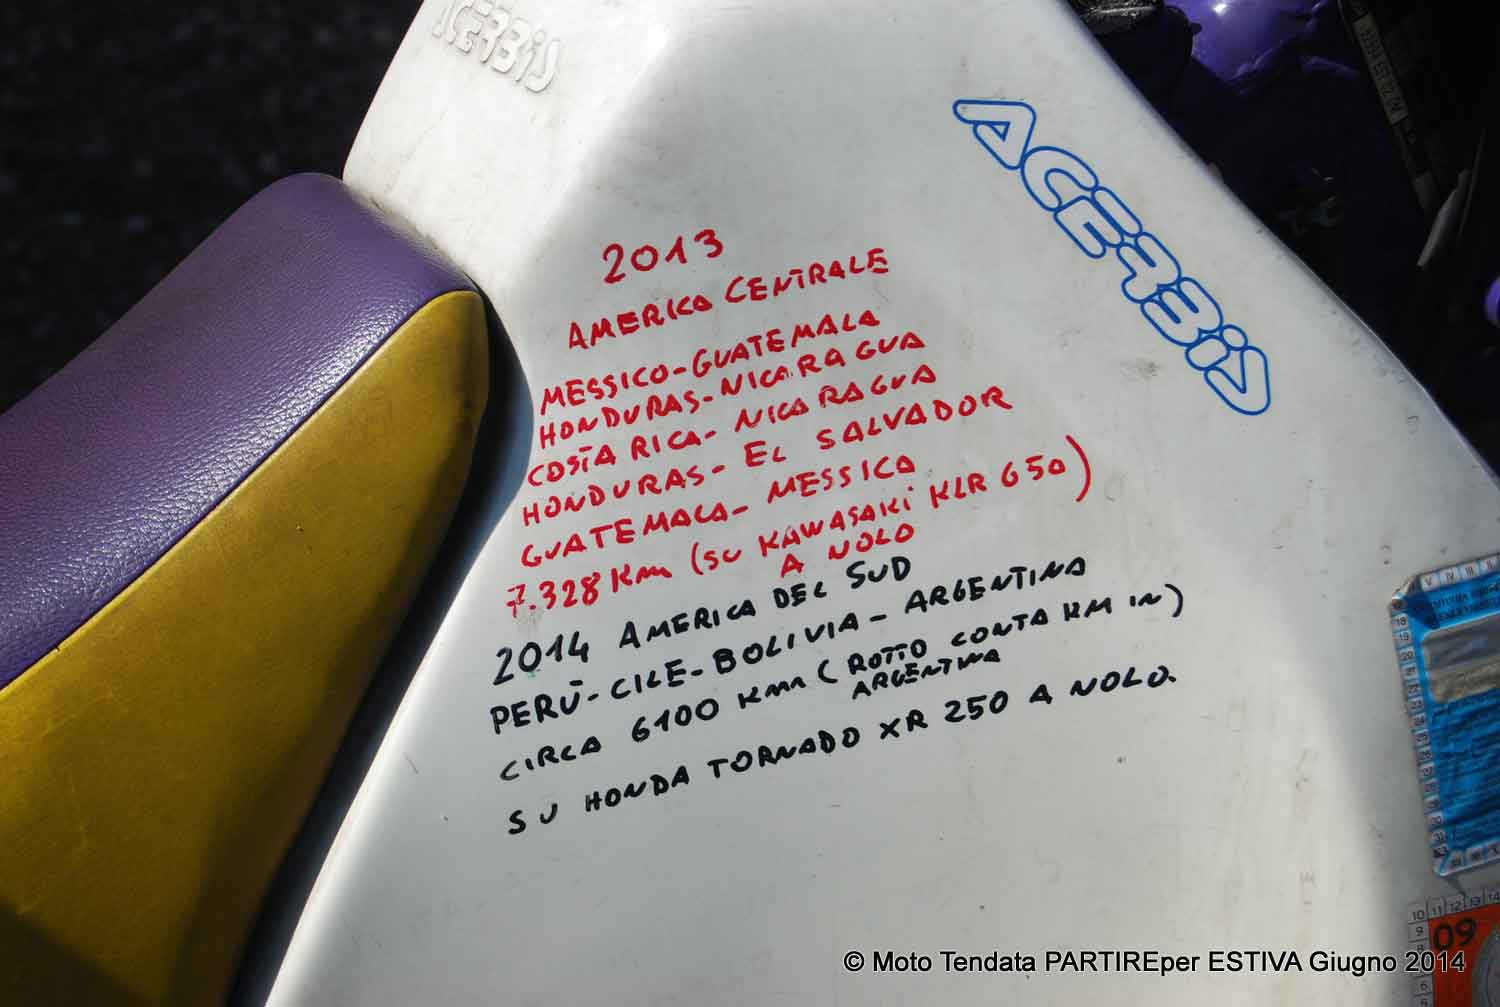 ACERBIS
ACERBIS
2013
AMERICA CENTRALE
MESSICO-GUATEMALA
HONDURAS-NICARAGUA
COSTA RICA- NICARAGUA
HONDURAS- EL SALVADOR
GUATEMALA- MESSICO
7.328 Km (SU KAWASAKI KLR 650)
A NOLO
2014 AMERICA DEL SUD
PERÙ-CILE-BOLIVIA-ARGENTINA
CIRCA 6100 Km (ROTTO CONTA KM IN)
ARGENTINA
SU HONDA TORNADO XR 250 A NOLO.
09
© Moto Tendata PARTIREper ESTIVA Giugno 2014